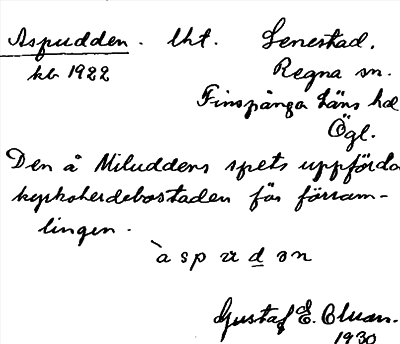 Aspudden. lht. Lenestad.
kb 1922 Regna sn.
Finspånga läns hd
Ögl.
Den å Miluddens spets uppförda
kyrkoherdebostaden för försam-
lingen.
Gustaf E. Cluan.
1930